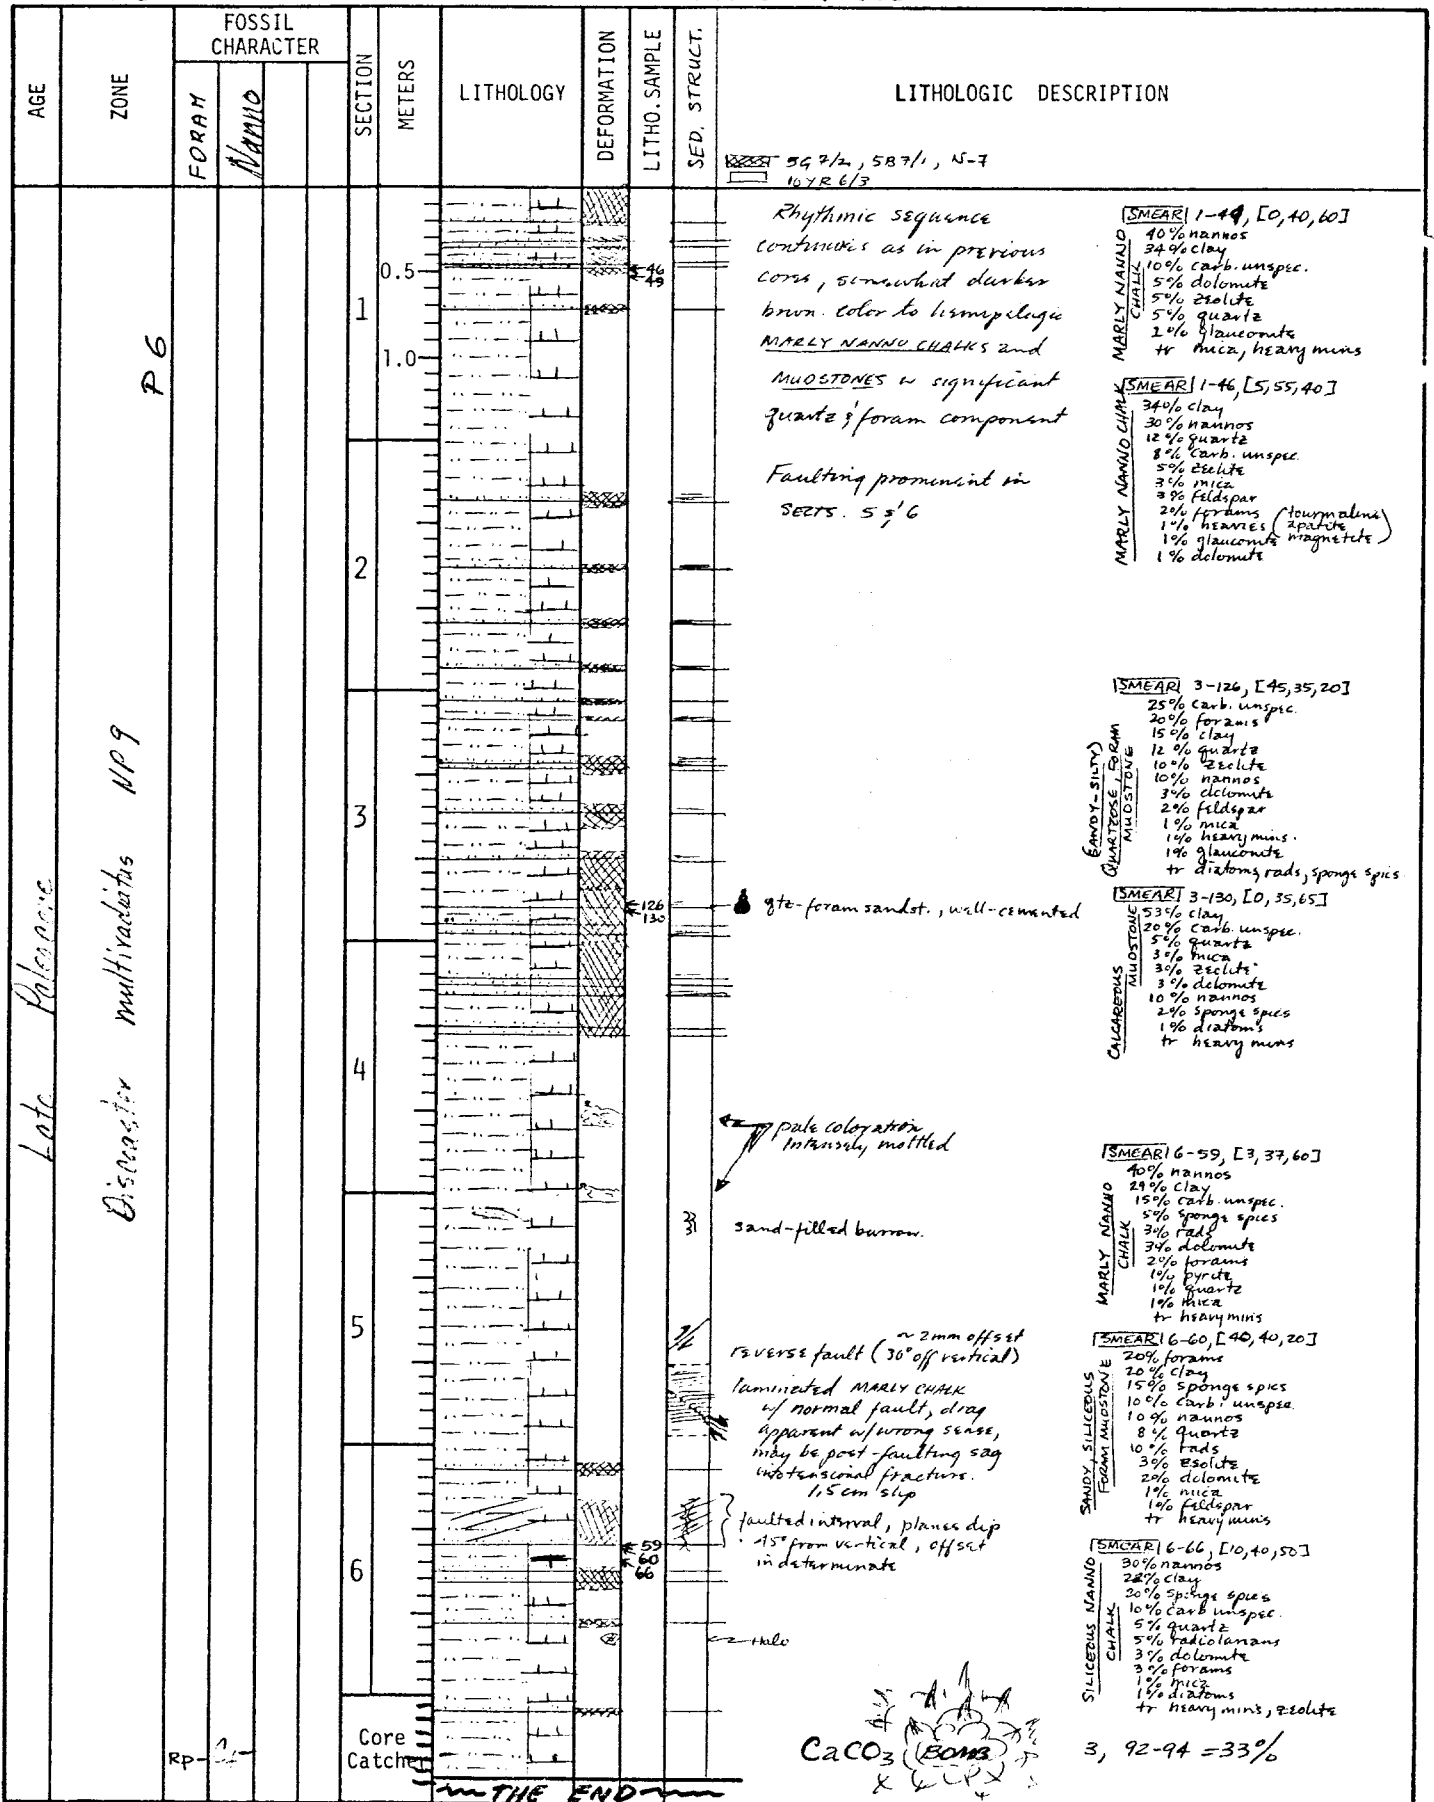 AGE
ZONE
FOSSIL
CHARACTER
FORAM
Nanno
SECTION
METERS
LITHOLOGY
DEFORMATION
LITHO. SAMPLE
SED. STRUCT.
LITHOLOGIC DESCRIPTION
5G 7/2, 5B7/1, N-7
10YR 6/3
Late Paleocene
Discoaster multiradiatus NP9
P6
0.5
1
1.0
2
3
4
5
6
Core
Catcher
Rp
46
49
126
130
59
60
66
Rhythmic sequence
continues as in previous
cores, somewhat darker
brown color to hemipelagic
MARLY NANNO CHALKS and
MUDSTONES w significant
quartz & foram component
Faulting prominent in
SECTS. 5 & 6
qtz-foram sandst., well-cemented
pale coloration
Intensely mottled
sand-filled burrow.
~2mm offset
reverse fault (30° off vertical)
laminated MARLY CHALK
w/ normal fault, drag
apparent w/wrong sense,
may be post-faulting sag
into tensional fracture.
1.5 cm slip
faulted interval, planes dip
~15° from vertical, offset
indeterminate
Halo
MARLY NANNO
CHALK
SMEAR 1-49, [0,40,60]
40% nannos
34% clay
10% carb. unspec.
5% dolomite
5% zeolite
5% quartz
1% glauconite
tr mica, heavy mins
MARLY NANNO CHALK
SMEAR 1-46, [5,55,40]
34% clay
30% nannos
12% quartz
8% carb. unspec.
5% zeolite
3% mica
3% feldspar
2% forams
1% heavies (tourmaline
apatite
magnetite)
1% glauconite
1% dolomite
(SANDY-SILTY)
QUARTZOSE, FORAM
MUDSTONE
SMEAR 3-126, [45,35,20]
25% carb. unspec.
20% forams
15% clay
12% quartz
10% zeolite
10% nannos
3% dolomite
2% feldspar
1% mica
1% heavy mins.
1% glauconite
tr diatoms, rads, sponge spics
CALCAREOUS
MUDSTONE
SMEAR 3-130, [0,35,65]
53% clay
20% carb. unspec.
5% quartz
3% mica
3% zeolite
3% dolomite
10% nannos
2% sponge spics
1% diatoms
tr heavy mins
MARLY NANNO
CHALK
SMEAR 6-59, [3,37,60]
40% nannos
29% clay
15% carb. unspec.
5% sponge spics
3% rads
3% dolomite
2% forams
1% pyrite
1% quartz
1% mica
tr heavy mins
SANDY, SILICEOUS
FORAM MUDSTONE
SMEAR 6-60, [40,40,20]
20% forams
20% clay
15% sponge spics
10% carb. unspec.
10% nannos
8% quartz
10% rads
3% zeolite
2% dolomite
1% mica
1% feldspar
tr heavy mins
SILICEOUS NANNO
CHALK
SMEAR 6-66, [10,40,50]
30% nannos
22% clay
20% sponge spics
10% carb unspec.
5% quartz
5% radiolarians
3% dolomite
3% forams
1% mica
1% diatoms
tr heavy mins, zeolite
CaCO3 (BOMB) 3, 92-94 = 33%
THE END